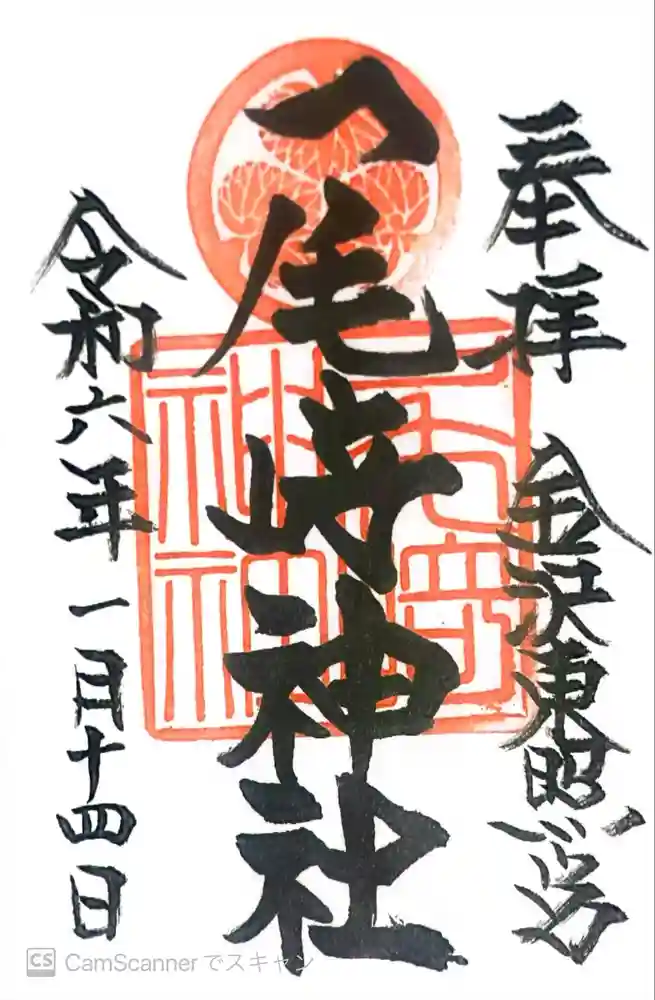 奉拝 金沢東照宮
尾崎神社
尾崎
神社
令和六年 一月十四日
CS CamScanner でスキャン